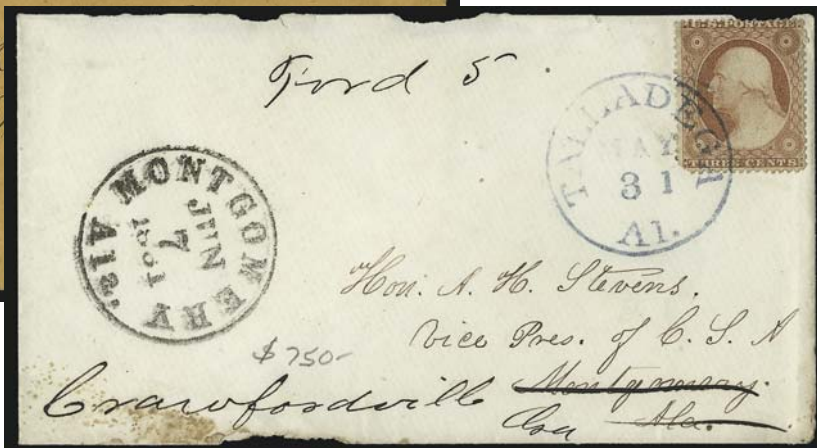 Ford 5
U.S. POSTAGE
THREE CENTS
TALLADEGA
MAY
31
Al.
MONTGOMERY
Ala.
JUN
7
1861
Hon. A. H. Stevens.
Vice Pres. of C. S. A
Montgomery.
Ala.
$750-
Crawfordville
Geo